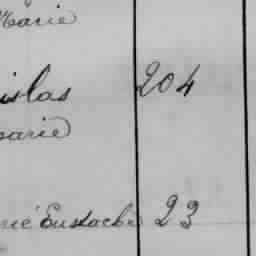 Marie
islas 204
arie
rié Eustache 23